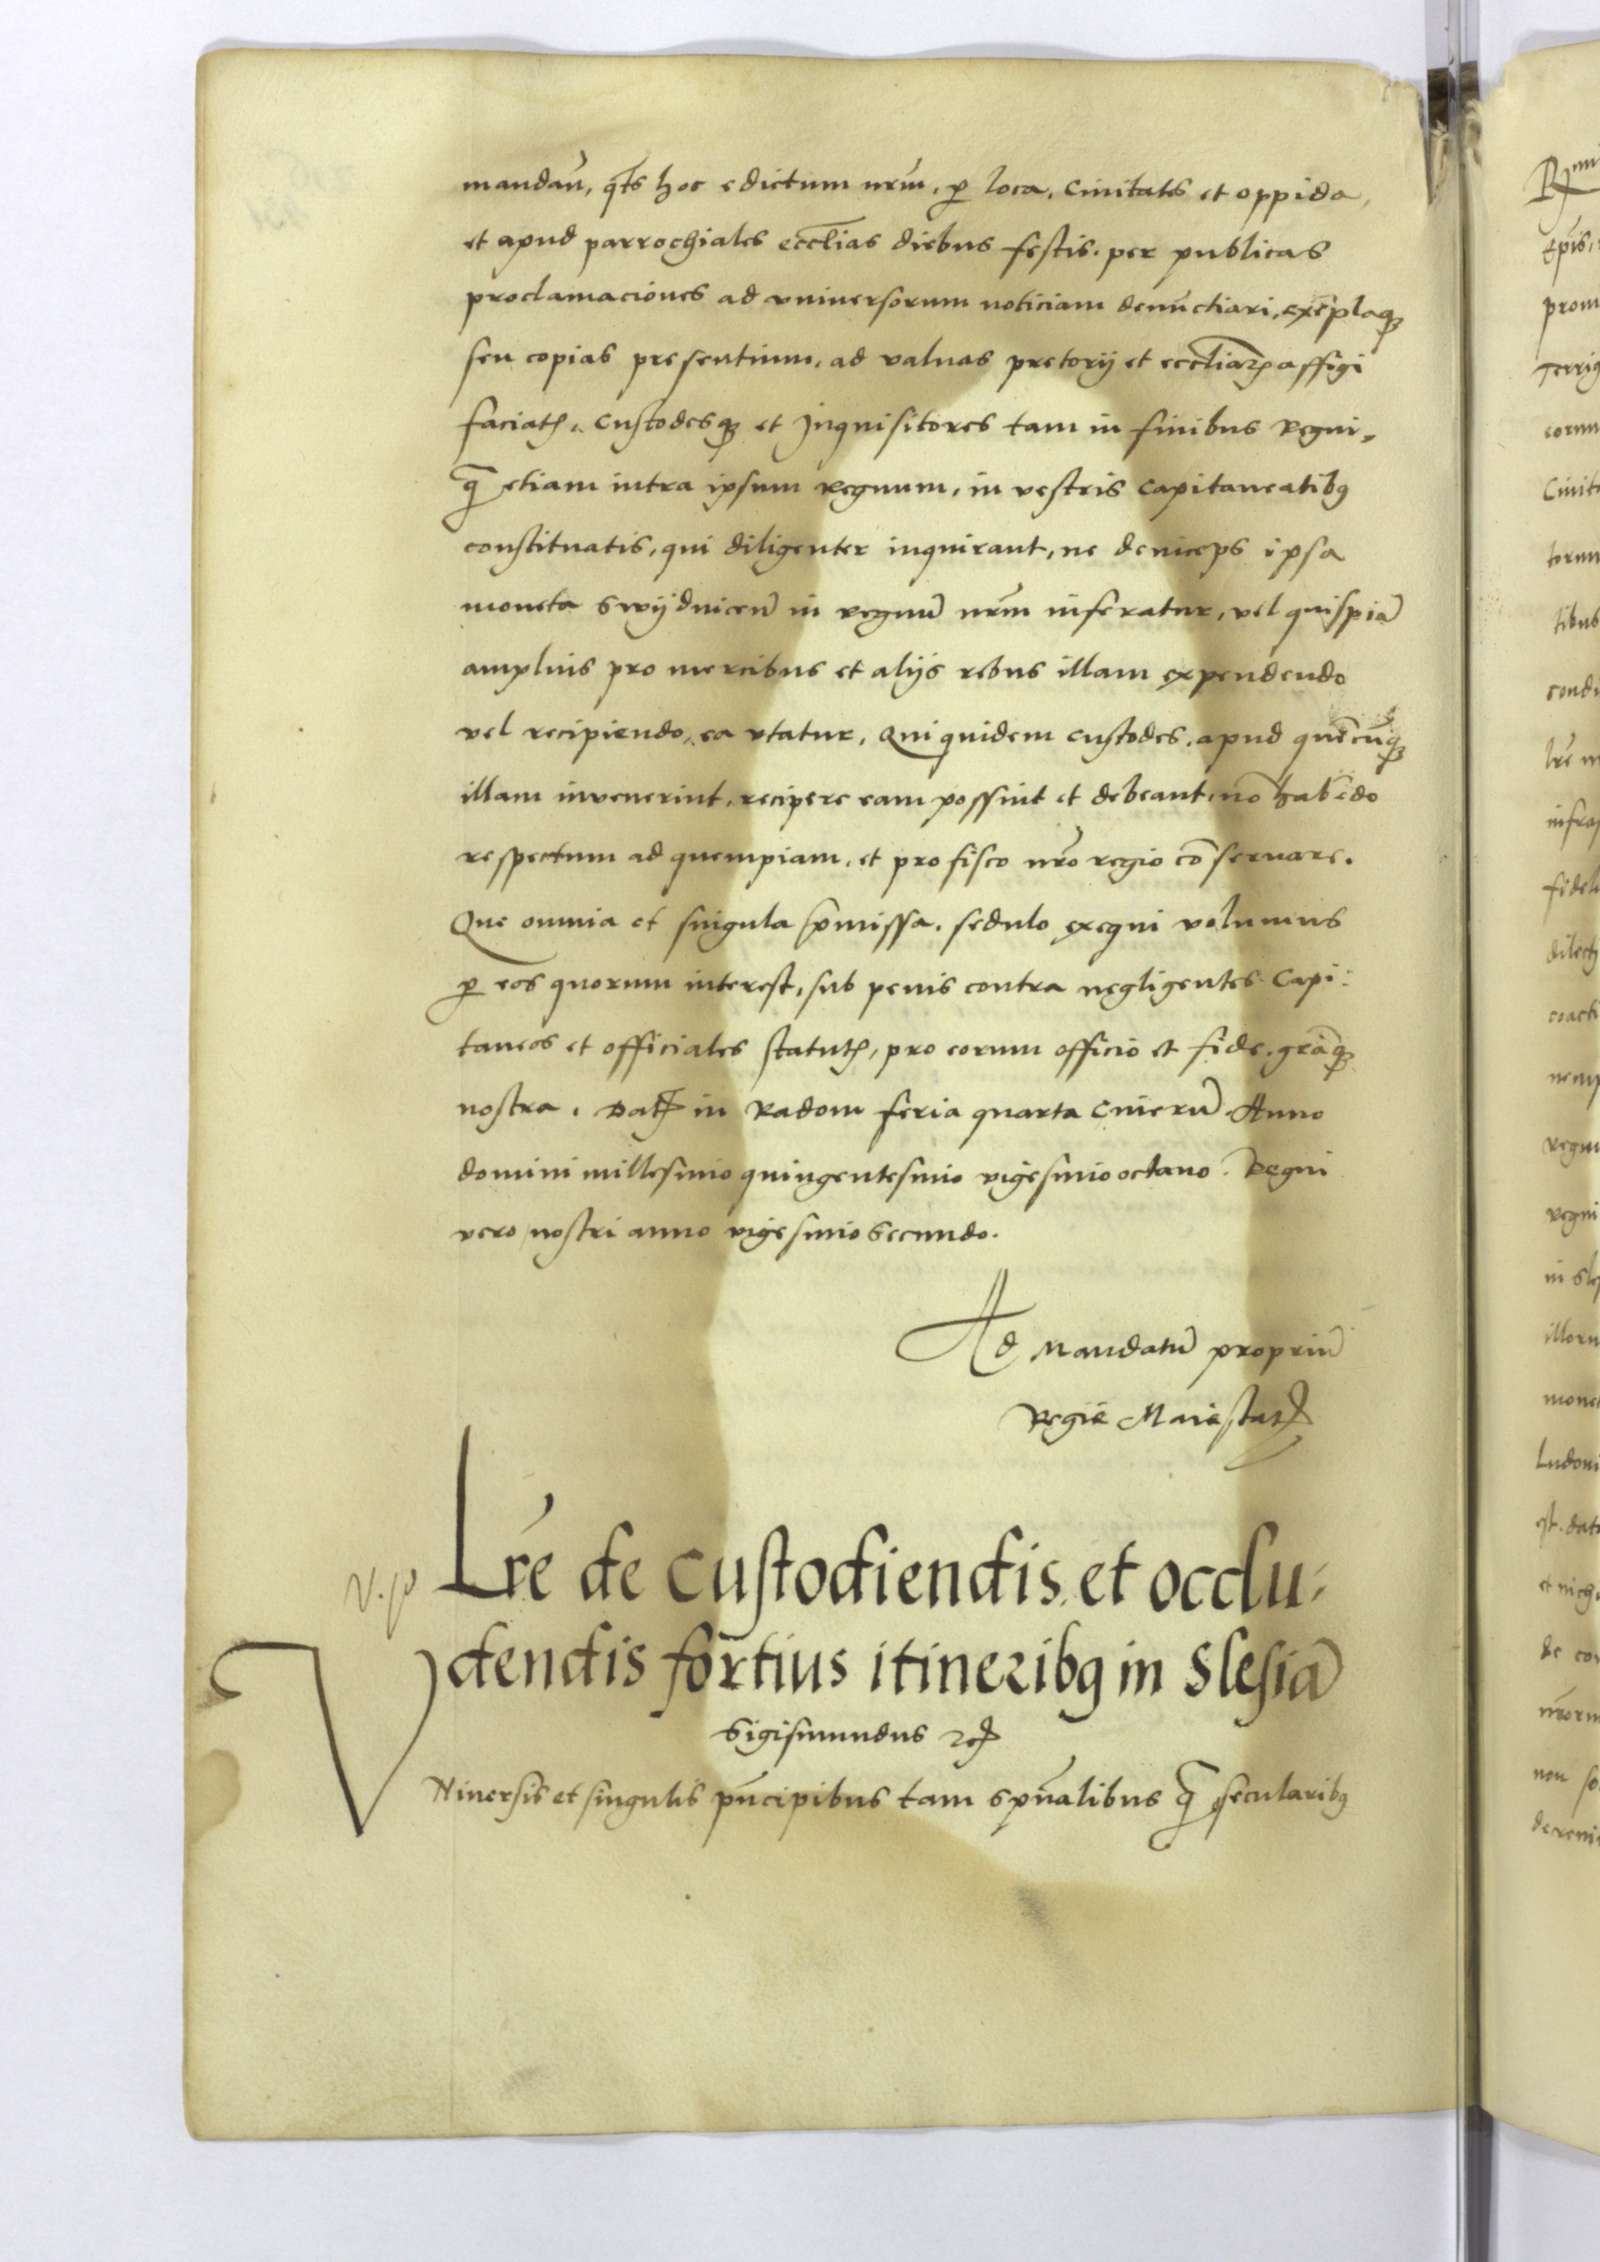 mandan̄, qt̄s hoc edictum nr̄m, ꝑ loca, Ciuitates et oppida,
et apud parrochiales ecc̄lias diebus festis, per publicas
proclamaciones ad vniuersorum noticiam denūctiari, exēplaqꝫ
seu copias presentium, ad valuas pretorij et ecc̄liaꝝ affigi
faciatꝭ, Custodesqꝫ et Inquisitores tam in finibus Regni,
q̄ etiam intra ipsum Regnum, in vestris Capitaneatibꝰ
constituatis, qui diligenter inquirant, ne deniceps ipsa
moneta swijdnicen̄ in regnū nr̄m inferatur, vel quispiā
amplius pro mercibus et alijs rebus illam expendendo
vel recipiendo, ea vtatur, Qui quidem Custodes, apud quēcūqꝫ
illam invenerint, recipere eam possint et debeant, nō habēdo
respectum ad quempiam, et pro fisco nr̄o regio cōseruare.
Que omnia et singula p̄missa, sedulo exequi volumus
ꝑ eos quorum interest, sub penis contra negligentes Capi:
taneos et officiales statutꝭ, pro eorum officio et fide, gr̄aqꝫ
nostra. Datꝭ in Radom feria quarta Cinerū Anno
domini millesimo quingentesimo vigesimooctauo. Regni
vero nostri anno vigesimosecundo.
Ad Mandatū propriū
Regie Maiestatꝭ
Lr̄e de custodiendis et occlu:
dendis fortius itineribꝰ in Slesiā
Sigismundus ⁊cꝭ
VNiuersis et singulis pn̄cipibus tam spūalibus q̄ secularibꝰ